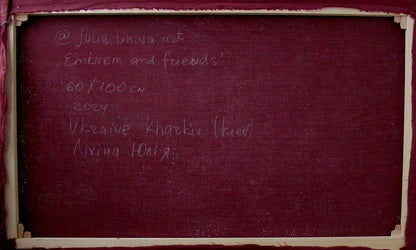 @ Julia Linina art
„Eminem and friends"
60 X 100 см
2024
Ukraine Kharkiv (Kiev)
Ліхіна Юлія